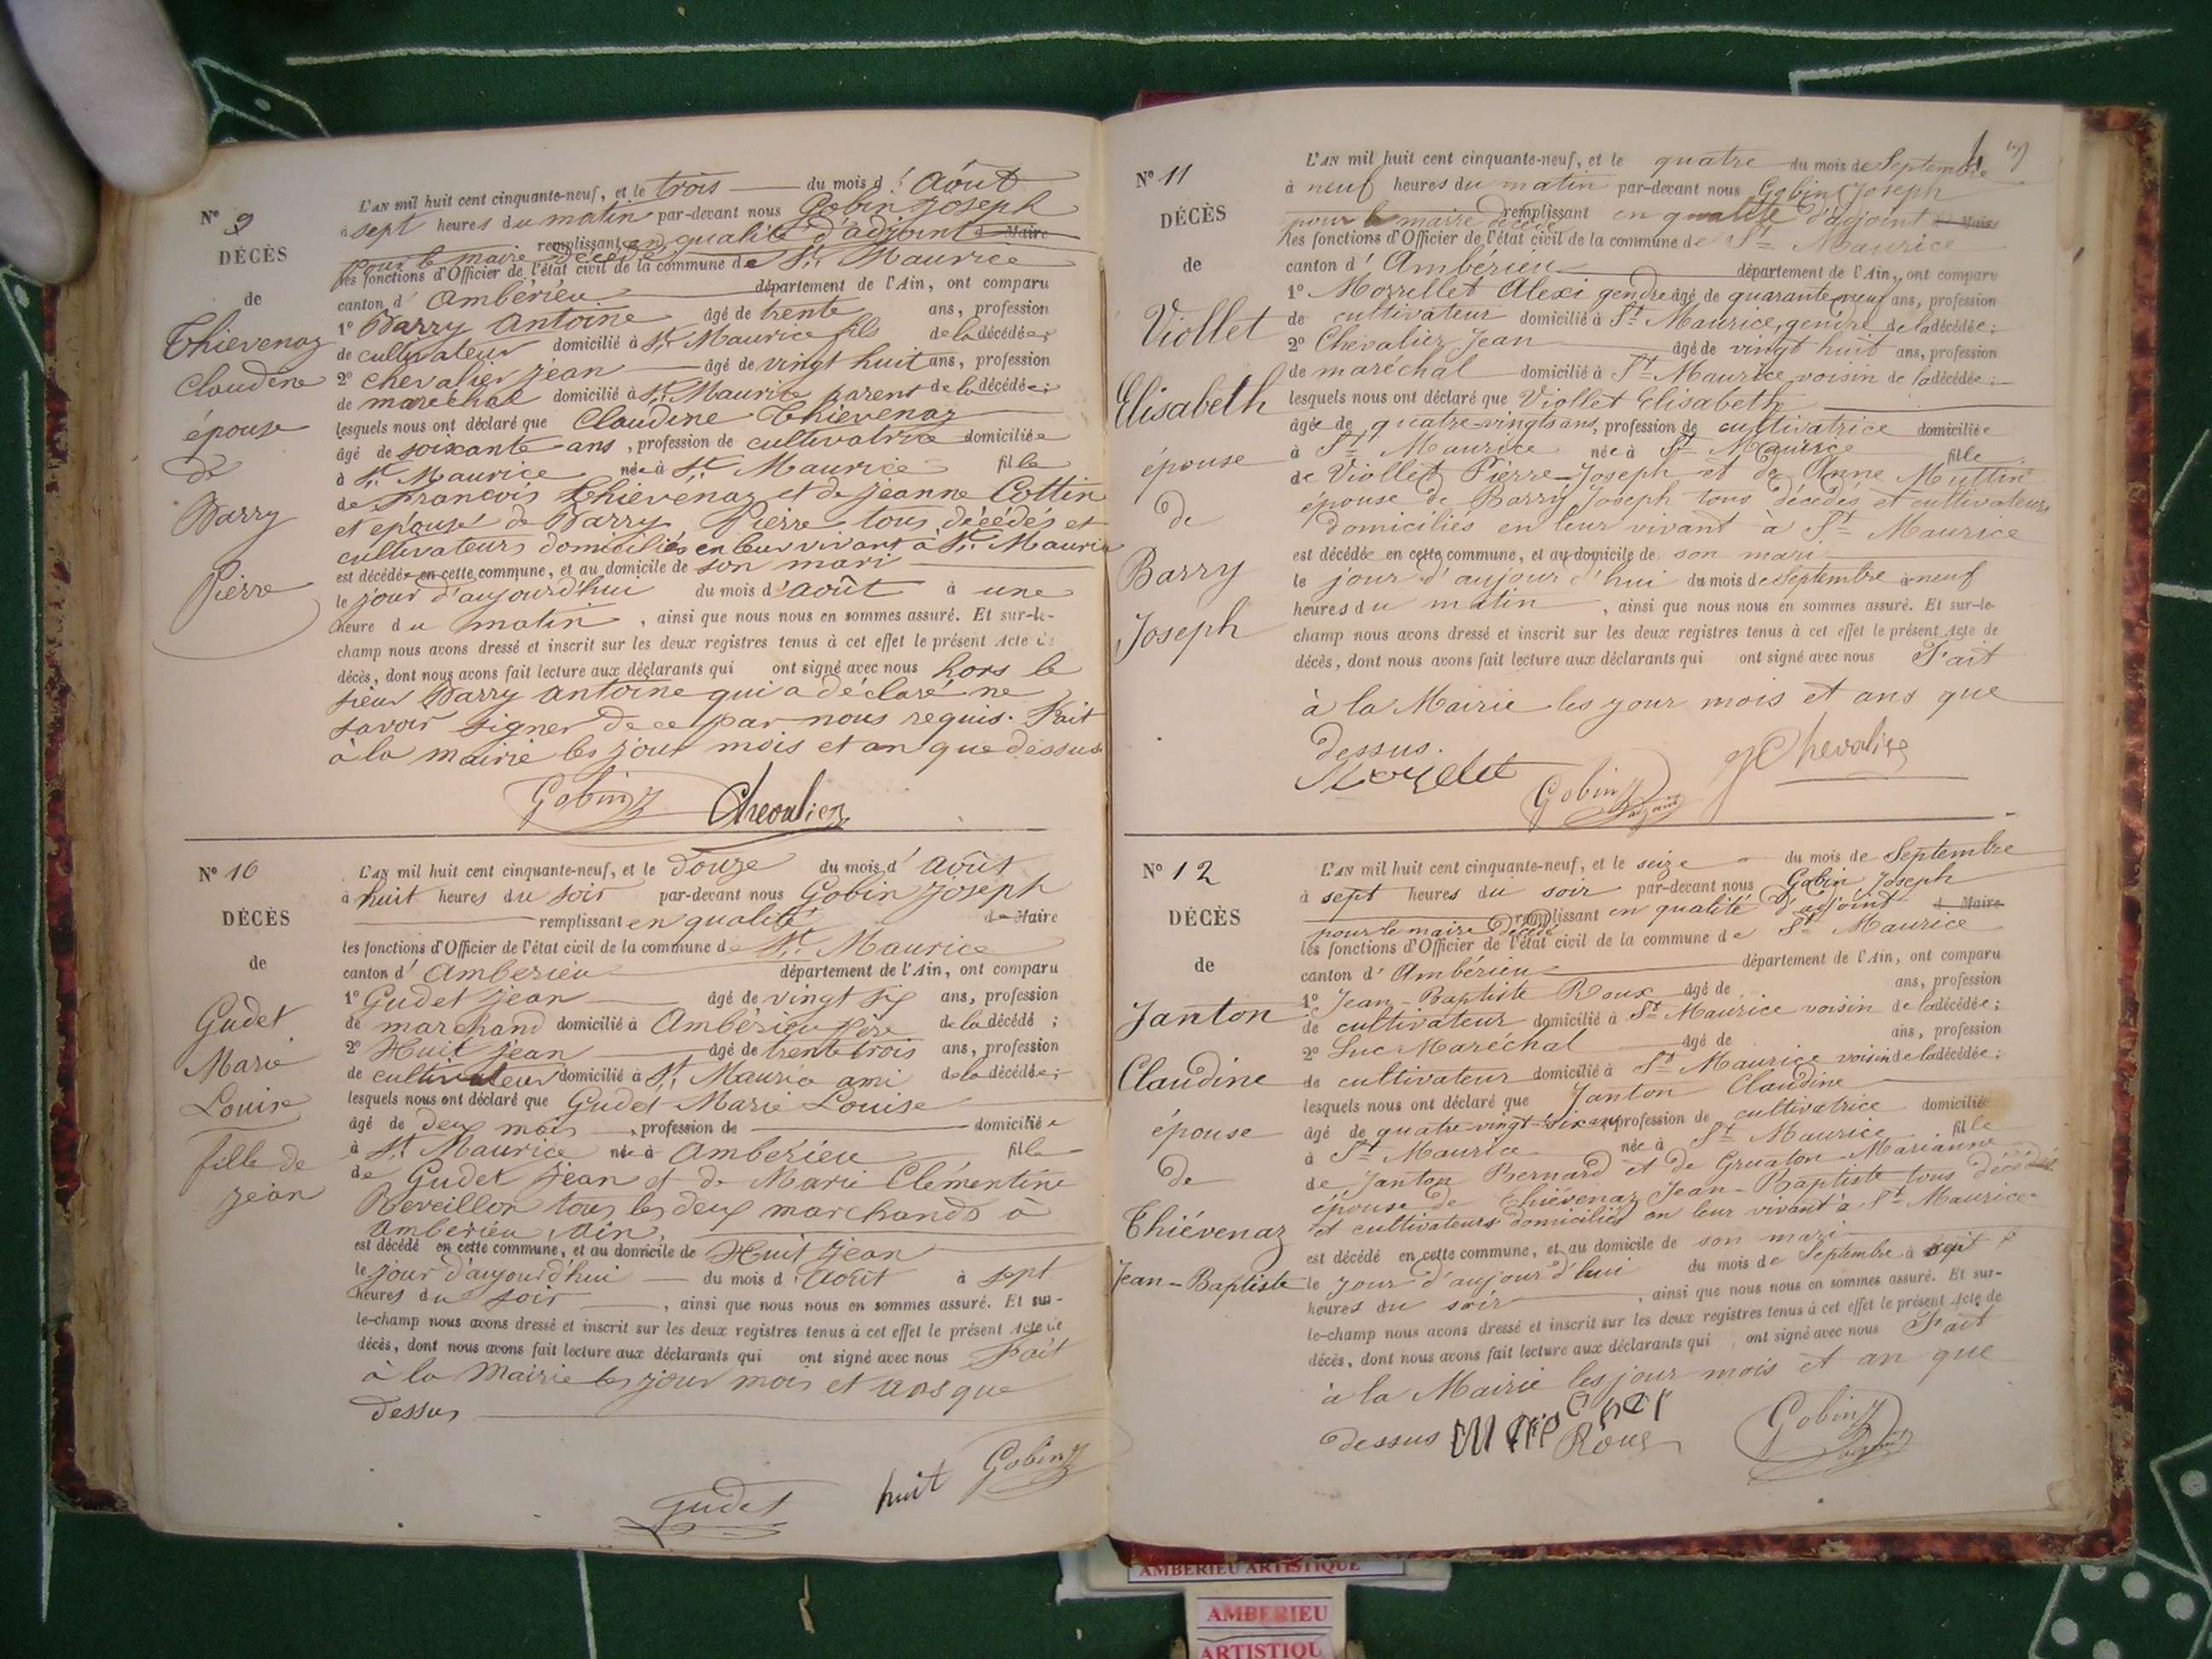 N° 9
DÉCÈS
de
Thievenaz
Claudine
épouse
de
Barry
Pierre
L'AN mil huit cent cinquante-neuf, et le trois du mois d' Août
à sept heures du matin par-devant nous Gobin Joseph
pour le maire décédé remplissant en qualité d'adjoint de Maire
les fonctions d'Officier de l'état civil de la commune de St. Maurice
canton d' Ambérieu département de l'Ain, ont comparu
1° Barry Antoine âgé de trente ans, profession
de cultivateur domicilié à St. Maurice fils de la décédée;
2° Chevalier Jean âgé de vingt huit ans, profession
de maréchal domicilié à St. Maurice parent de la décédée;
lesquels nous ont déclaré que Claudine Thievenaz
âgé de soixante ans, profession de cultivatrice domiciliée
à St. Maurice née à St. Maurice fille
de Francois Thievenaz et de Jeanne Cottin
et épouse de Barry Pierre tous décédés et
cultivateurs domiciliés en leur vivant à St. Maurice
est décédée en cette commune, et au domicile de son mari
le jour d'aujourd'hui du mois d'août à une
heure du matin, ainsi que nous nous en sommes assuré. Et sur-le-
champ nous avons dressé et inscrit sur les deux registres tenus à cet effet le présent Acte de
décès, dont nous avons fait lecture aux déclarants qui ont signé avec nous hors le
sieur Barry Antoine qui a déclaré ne
savoir signer de ce par nous requis. Fait
à la mairie les jour mois et an que dessus
Gobin J Chevalier
N° 10
DÉCÈS
de
Gudet
Marie
Louise
fille de
Jean
L'AN mil huit cent cinquante-neuf, et le Douze du mois d' Août
à huit heures du soir par-devant nous Gobin Joseph
remplissant en qualité de Maire
les fonctions d'Officier de l'état civil de la commune de St. Maurice
canton d' Amberieu département de l'Ain, ont comparu
1° Gudet Jean âgé de vingt six ans, profession
de marchand domicilié à Ambérieu père de la décédé;
2° Huit Jean âgé de trente trois ans, profession
de cultivateur domicilié à St. Maurice ami de la décédée;
lesquels nous ont déclaré que Gudet Marie Louise
âgé de deux mois, profession de domicilié e
à St. Maurice née à Amberieu fille
de Gudet Jean et de Marie Clémentine
Reveillon tous les deux marchands à
Amberieu Ain,
est décédé en cette commune, et au domicile de Huit Jean
le jour d'aujourd'hui du mois d' Août à sept
heures du soir, ainsi que nous nous en sommes assuré. Et sur-
le-champ nous avons dressé et inscrit sur les deux registres tenus à cet effet le présent Acte de
décès, dont nous avons fait lecture aux déclarants qui ont signé avec nous Fait
à la Mairie les jour mois et ans que
dessus
Gudet huit Gobin J
N° 11
DÉCÈS
de
Viollet
Elisabeth
épouse
de
Barry
Joseph
L'AN mil huit cent cinquante-neuf, et le quatre du mois de Septembre
à neuf heures du matin par-devant nous Gobin Joseph
pour le maire décédé remplissant en qualité d'adjoint de Maire
les fonctions d'Officier de l'état civil de la commune de St. Maurice
canton d' Ambérieu département de l'Ain, ont comparu
1° Morrellet Alexi gendre âgé de quarante neuf ans, profession
de cultivateur domicilié à St. Maurice, gendre de la décédée;
2° Chevalier Jean âgé de vingt huit ans, profession
de maréchal domicilié à St. Maurice voisin de la décédée;
lesquels nous ont déclaré que Viollet Elisabeth
âgée de quatre-vingts ans, profession de cultivatrice domiciliée
à St. Maurice née à St. Maurice fille
de Viollet Pierre-Joseph et de Anne Muttin
épouse de Barry Joseph tous décédés et cultivateurs
domiciliés en leur vivant à St. Maurice
est décédée en cette commune, et au domicile de son mari
le jour d'aujour d'hui du mois de Septembre à neuf
heures du matin, ainsi que nous nous en sommes assuré. Et sur-le-
champ nous avons dressé et inscrit sur les deux registres tenus à cet effet le présent Acte de
décès, dont nous avons fait lecture aux déclarants qui ont signé avec nous Fait
à la Mairie les jour mois et ans que
dessus.
Gobin J J Chevalier
N° 12
DÉCÈS
de
Janton
Claudine
épouse
de
Thiévenaz
Jean-Baptiste
L'AN mil huit cent cinquante-neuf, et le seize du mois de Septembre
à sept heures du soir par-devant nous Gobin Joseph
pour le maire décédé remplissant en qualité d'adjoint de Maire
les fonctions d'Officier de l'état civil de la commune de St. Maurice
canton d' Ambérieu département de l'Ain, ont comparu
1° Jean-Baptiste Roux âgé de ans, profession
de cultivateur domicilié à St. Maurice voisin de la décédée;
2° Luc Maréchal âgé de ans, profession
de cultivateur domicilié à St. Maurice voisin de la décédée;
lesquels nous ont déclaré que Janton Claudine
âgé de quatre-vingt-six ans, profession de cultivatrice domiciliée
à St. Maurice née à St. Maurice fille
de Janton Bernard et de Gruaton Marianne
épouse de Thiévenaz Jean-Baptiste tous décédés
et cultivateurs domiciliés en leur vivant à St. Maurice
est décédé en cette commune, et au domicile de son mari
le jour d'aujour d'hui du mois de Septembre à sept
heures du soir, ainsi que nous nous en sommes assuré. Et sur-
le-champ nous avons dressé et inscrit sur les deux registres tenus à cet effet le présent Acte de
décès, dont nous avons fait lecture aux déclarants qui ont signé avec nous Fait
à la Mairie les jour mois et an que
dessus Roux Gobin J
AMBERIEU ARTISTIQUE
AMBERIEU
ARTISTIQU